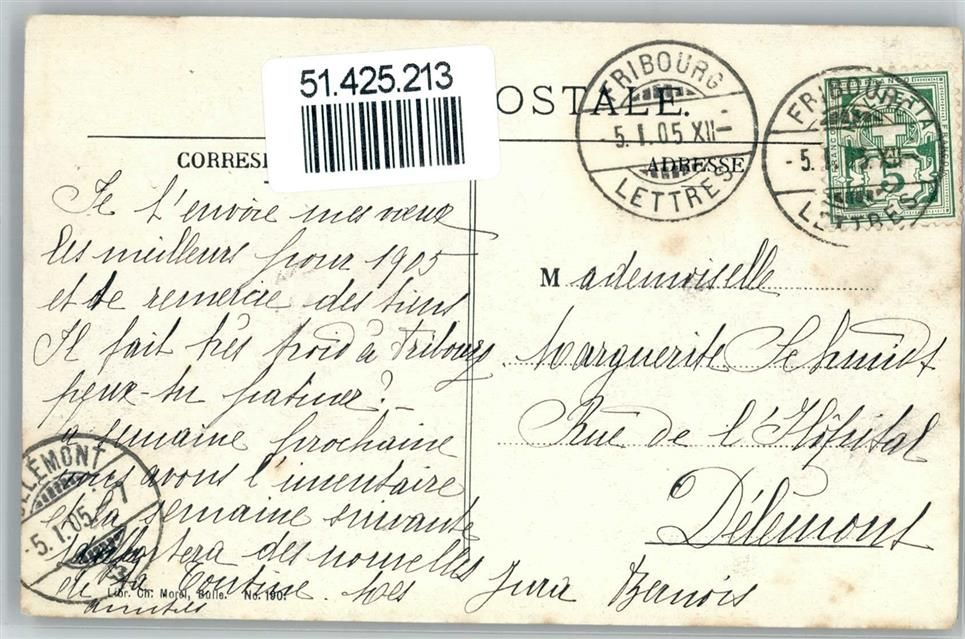 51.425.213
OSTALE.
CORRES
ADRESSE
FRIBOURG
-5.I.05 XII-
LETTRES
FRIBOURG
-5.
XII
LETTRES
5
Je t'envoie mes vœux
les meilleurs pour 1905
et te remercie des tiens
Il fait très froid à Fribourg
peux-tu patiner?
a semaine prochaine
nous avons l'inventaire
et la semaine suivante
des nouvelles
de ta Cousine. Mes
amitiés
DELÉMONT
-5.I.05.-7
Mademoiselle
Marguerite Schmidt
Rue de l'Hôpital
Délémont
Jura Bernois
Libr. Ch. Morel, Bulle. No. 190